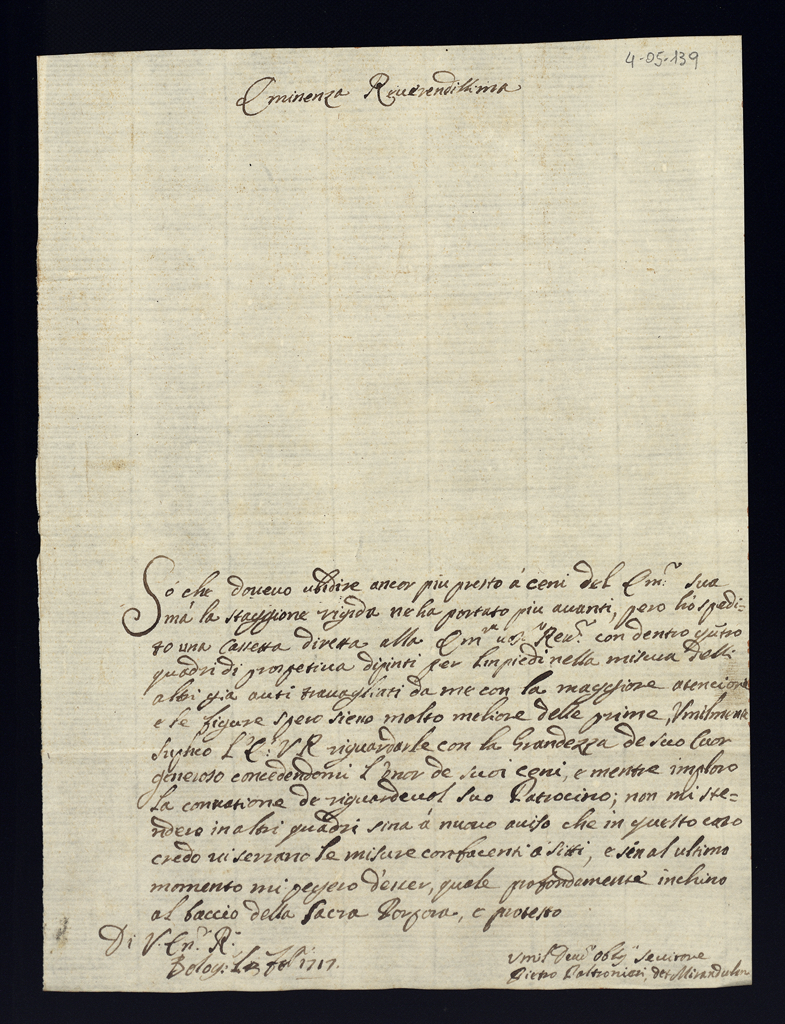 4-05-139
Eminenza Reverendissima
Sò che doveuo ubidire ancor piu presto á ceni del Em.ª sua
má la staggione rigida ne ha portato piu auanti, pero hò spedi=
to una Cassetta diretta alla Em Reu.ª con dentro
quadri di prospetiua dipinti per l'inpiedi nella misura delli
altri già auti trauagliati da me con la maggiore atencione
e le figure spero sieno molto meliore delle prime, Vmilmente
suplico L'E: V R riguardarle con la Grandezza de suo Cuor
generoso concedendomi l'onor de suoi ceni, e mentre imploro
la de riguardeuol suo Patrocino; non mi ste=
ndero in altri quadri sina á nuouo auiso che in questo caso
credo ui serano le misure confacenti a sitti, e sin al ultimo
momento mi d'esser, quale profondamente inchino
al baccio della Sacra Porpora, e protesto
Di V. Em.ª R.ª
Bolog: 1717.
Vmil.º Deu.º Obl.º Seruitore
Pietro Paltronieri, det Mirandulen